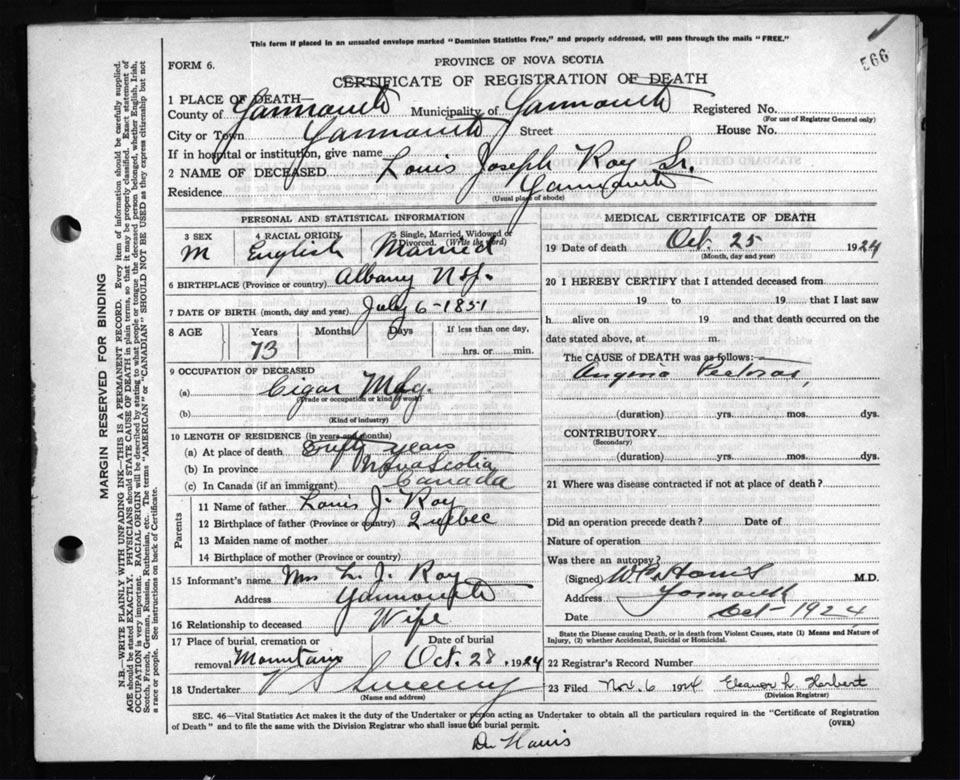 This form if placed in an unsealed envelope marked "Dominion Statistics Free," and properly addressed, will pass through the mails "FREE."
566
FORM 6.
PROVINCE OF NOVA SCOTIA
CERTIFICATE OF REGISTRATION OF DEATH
1 PLACE OF DEATH—
County of Yarmouth Municipality of Yarmouth Registered No.
(For use of Registrar General only)
City or Town Yarmouth Street House No.
If in hospital or institution, give name
2 NAME OF DECEASED Louis Joseph Roy Sr.
Residence Yarmouth
(Usual place of abode)
PERSONAL AND STATISTICAL INFORMATION
3 SEX 4 RACIAL ORIGIN 5 Single, Married, Widowed or Divorced. (Write the word)
M English Married
6 BIRTHPLACE (Province or country) Albany N.Y.
7 DATE OF BIRTH (month, day and year) July 6-1851
8 AGE Years Months Days If less than one day,
73 hrs. or min.
9 OCCUPATION OF DECEASED
(a) Cigar Mfg.
(Trade or occupation or kind of work)
(b)
(Kind of industry)
10 LENGTH OF RESIDENCE (in years and months)
(a) At place of death years
(b) In province Nova Scotia
(c) In Canada (if an immigrant) Canada
Parents
11 Name of father Louis J. Roy
12 Birthplace of father (Province or country) Quebec
13 Maiden name of mother
14 Birthplace of mother (Province or country)
15 Informant's name Mrs L. J. Roy
Address Yarmouth
16 Relationship to deceased Wife
17 Place of burial, cremation or removal Mountain Date of burial Oct. 28, 1924
18 Undertaker V S Sweeny
(Name and address)
MEDICAL CERTIFICATE OF DEATH
19 Date of death Oct. 25 1924
(Month, day and year)
20 I HEREBY CERTIFY that I attended deceased from
19 to 19 that I last saw
h alive on 19 and that death occurred on the
date stated above, at m.
The CAUSE of DEATH was as follows:
Angina Pectoras,
(duration) yrs. mos. dys.
CONTRIBUTORY
(Secondary)
(duration) yrs. mos. dys.
21 Where was disease contracted if not at place of death?
Did an operation precede death? Date of
Nature of operation
Was there an autopsy?
(Signed) Harris M.D.
Address Yarmouth
Date Oct- 1924
State the Disease causing Death, or in death from Violent Causes, state (1) Means and Nature of
Injury, (2) whether Accidental, Suicidal or Homicidal.
22 Registrar's Record Number
23 Filed Nov. 6 1924 Eleanor L. Herbert
(Division Registrar)
SEC. 46—Vital Statistics Act makes it the duty of the Undertaker or person acting as Undertaker to obtain all the particulars required in the "Certificate of Registration
of Death" and to file the same with the Division Registrar who shall issue the burial permit. (OVER)
Dr Harris
MARGIN RESERVED FOR BINDING
N.B.—WRITE PLAINLY WITH UNFADING INK—THIS IS A PERMANENT RECORD. Every item of information should be carefully supplied.
AGE should be stated EXACTLY. PHYSICIANS should STATE CAUSE OF DEATH in plain terms, so that it may be properly classified. Exact statement of
OCCUPATION is very important. RACIAL ORIGIN will be described by stating to what people or tongue the deceased person belonged, whether English, Irish,
Scotch, French, German, Russian, Ruthenian, etc. The terms "AMERICAN" or "CANADIAN" SHOULD NOT BE USED as they express citizenship but not
a race or people. See instructions on back of Certificate.